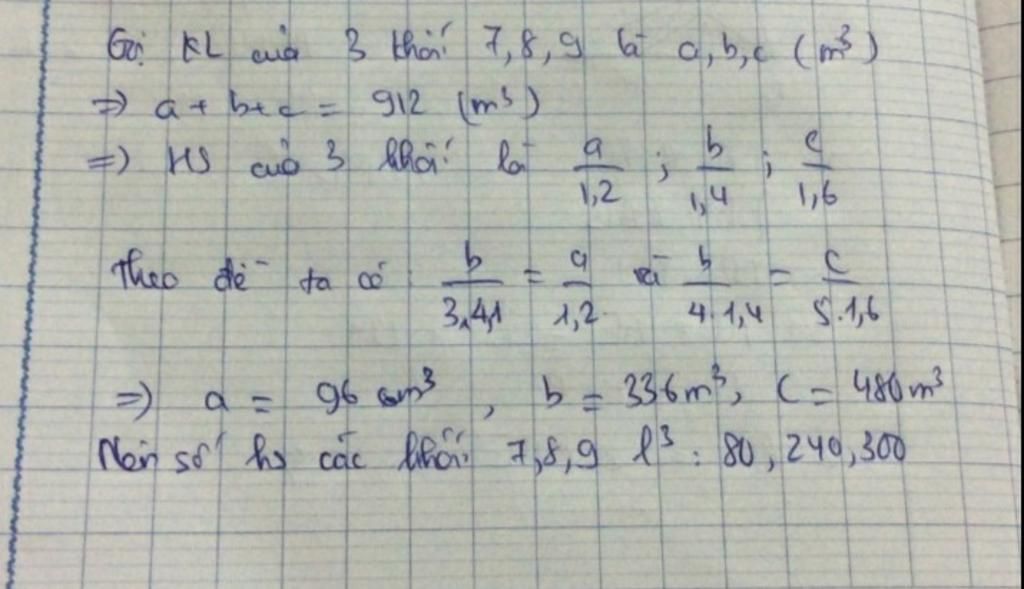 Gọi KL của 3 khối 7,8,9 là a,b,c (m³)
=> a + b+c = 912 (m³)
=> HS của 3 khối là a/1,2 ; b/1,4 ; c/1,6
Theo đề ta có : b/3,4,1 = a/1,2 và b/4.1,4 = c/5.1,6
=> a = 96 m³, b = 336m³, c = 480m³
Nên số hs các khối 7,8,9 l³ : 80, 240, 300